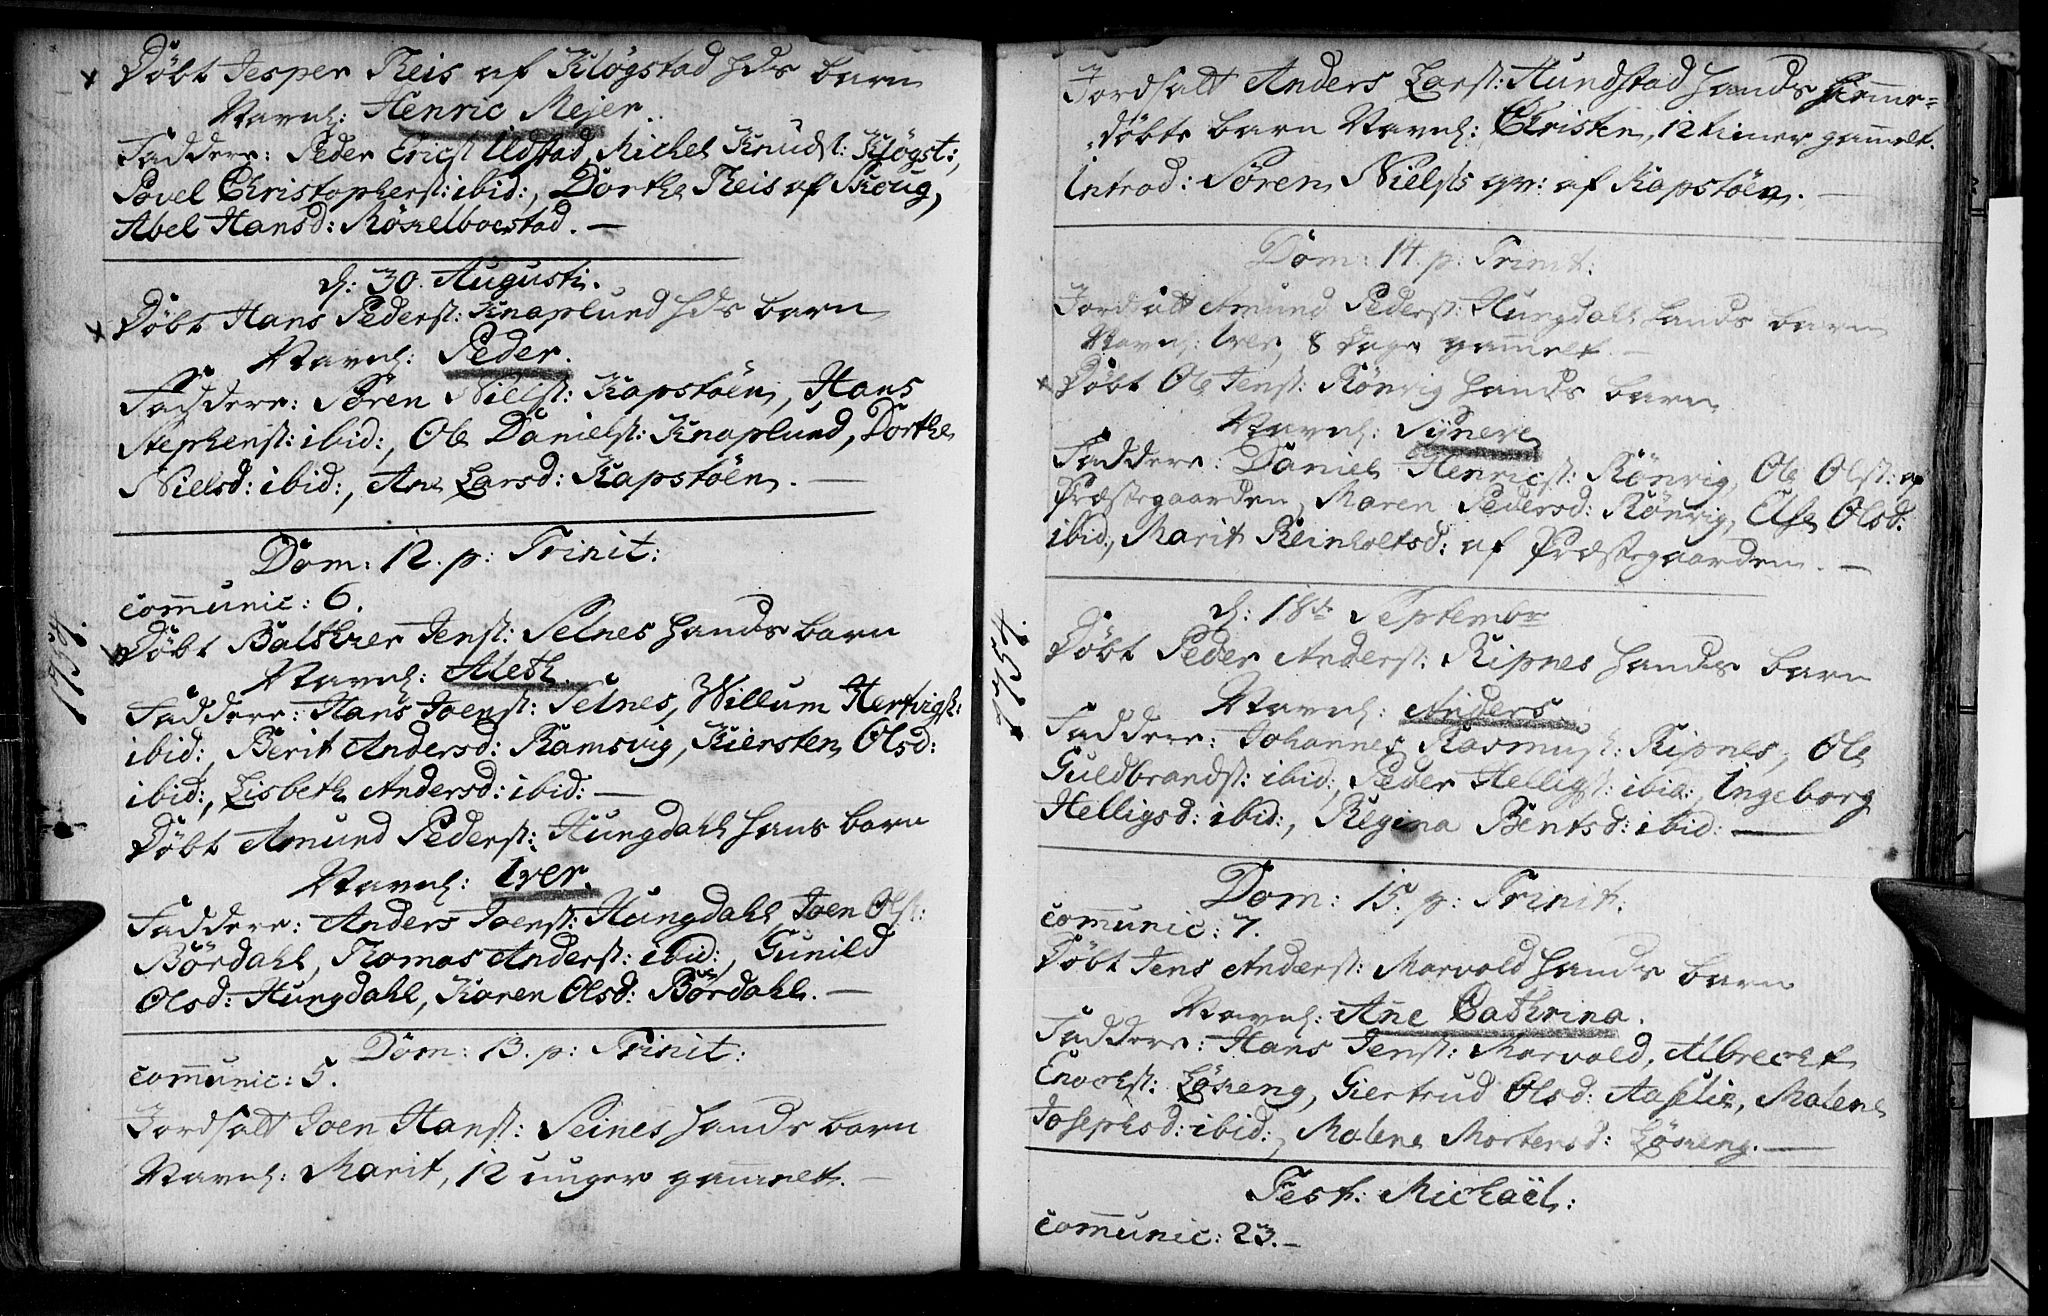 Döbt Jesper Reis af Klögstad hds barn
Navnl: Henric Mejer.
Faddere: Peder Ericst: Udstad, Michel Knudst: Klögst:,
Povel Christopherst: ibid:, Dorthe Reis af Skoug,
Abel Hansd: Röxelboestad. —
d: 30. Augusti.
Döbt Hans Pederst: Knaplund hds barn
Navnl: Peder.
Faddere: Sören Nielst: Kapstöen, Hans
Stephenst: ibid:, Ole Danielst: Knaplund, Dorthe
Nielsd: ibid:, Ane Larsd: Kapstöen. —
Dom: 12. p: Trinit:
comunic: 6.
Döbt Balthzer Jenst: Selnes hands barn
Navnl: Aleth.
Faddere: Hans Joenst: Selnes, Willum Hertvigst:
ibid:, Berit Andersd: Ramsvig, Kiersten Olsd:
ibid:, Lisbeth Andersd: ibid: —
Döbt Amund Pederst: Hungdahl hans barn
Navnl: Iver.
Faddere: Anders Joenst: Hungdahl, Joen Olst:
Bördahl, Thomas Anderst: ibid:, Gunild
Olsd: Hungdahl, Karen Olsd: Bördahl. —
1754.
Dom: 13. p: Trinit:
comunic: 5.
Jordfalt Joen Hanst: Seines hands barn
Navnl: Marit, 12 uuger gamelt. —
Jordfalt Anders Larst: Hundstad hands hieme=
döbte barn Navnl: Christen, 12 timer gamelt.
Introd: Sören Nielsts qv: af Kapstöen. —
Dom: 14. p: Trinit:
Jordfalt Amund Pederst: Hungdahl hands barn
Navnl: Iver, 8 dage gamelt. —
Döbt Ole Jenst: Rönvig hands barn
Navnl: Syneve
Faddere: Daniel Henricst: Rönvig, Ole Olst: af
Præstegaarden, Maren Pedersd: Rönvig, Else Olsd:
ibid:, Marit Reinholtsd: af Præstegaarden. —
d: 18de Septembr
Döbt Peder Anderst: Ripnes hands barn
Navnl: Anders.
Faddere: Johannes Rasmust: Ripnes, Ole
Guldbrandst: ibid:, Peder Helligst: ibid:, Ingeborg
Helligsd: ibid:, Regina Bentsd: ibid: —
1754.
Dom: 15. p: Trinit:
comunic: 7.
Döbt Jens Anderst: Marvold hands barn
Navnl: Ane Cathrina.
Faddere: Hans Jenst: Marvold, Albrecht
Enochst: Löxeng, Giertrud Olsd: Aaselie, Malene
Josephsd: ibid:, Malene Mortensd: Löxeng. —
Fest: Michaël:
comunic: 23. —